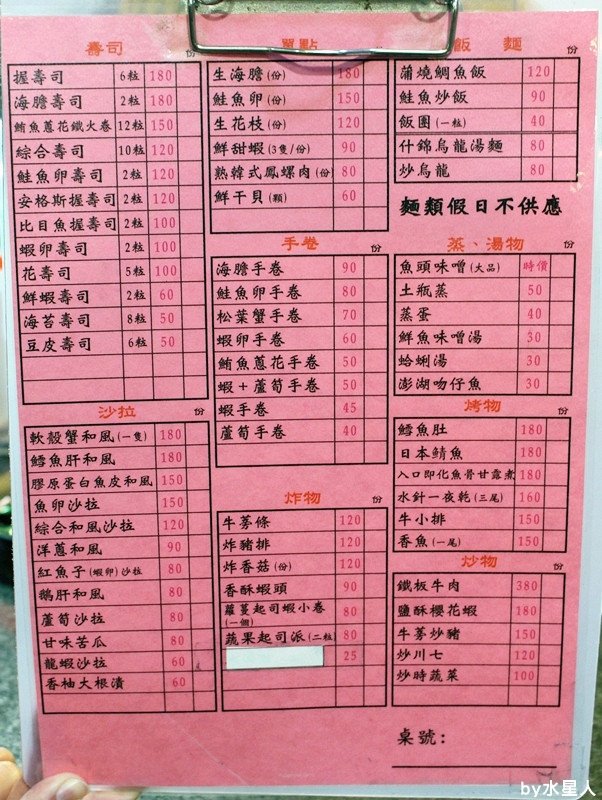 壽司 份
握壽司 6粒 180
海膽壽司 2粒 180
鮪魚蔥花鐵火卷 12粒 150
綜合壽司 10粒 120
鮭魚卵壽司 2粒 120
安格斯握壽司 2粒 120
比目魚握壽司 2粒 100
蝦卵壽司 2粒 100
花壽司 5粒 100
鮮蝦壽司 2粒 60
海苔壽司 8粒 50
豆皮壽司 6粒 50
沙拉 份
軟殼蟹和風(一隻) 180
鱈魚肝和風 180
膠原蛋白魚皮和風 150
魚卵沙拉 150
綜合和風沙拉 120
洋蔥和風 90
紅魚子(蝦卵)沙拉 80
鵝肝和風 80
蘆筍沙拉 80
甘味苦瓜 80
龍蝦沙拉 60
香柚大根漬 60
單點 份
生海膽(份) 180
鮭魚卵(份) 150
生花枝(份) 120
鮮甜蝦(3隻/份) 90
熟韓式鳳螺肉(份) 80
鮮干貝(顆) 60
手卷 份
海膽手卷 90
鮭魚卵手卷 80
松葉蟹手卷 70
蝦卵手卷 60
鮪魚蔥花手卷 50
蝦+蘆筍手卷 50
蝦手卷 45
蘆筍手卷 40
炸物 份
牛蒡條 120
炸豬排 120
炸香菇(份) 120
香酥蝦頭 90
蘿蔓起司蝦小卷(一個) 80
蔬果起司派(二粒) 80
25
飯 麵 份
蒲燒鯛魚飯 120
鮭魚炒飯 90
飯團(一粒) 40
什錦烏龍湯麵 80
炒烏龍 80
麵類假日不供應
蒸、湯物 份
魚頭味噌(大品) 時價
土瓶蒸 50
蒸蛋 40
鮮魚味噌湯 30
蛤蜊湯 30
澎湖吻仔魚 30
烤物 份
鱈魚肚 180
日本鯖魚 180
入口即化魚骨甘露煮 180
水針一夜乾(三尾) 160
牛小排 150
香魚(一尾) 150
炒物 份
鐵板牛肉 380
鹽酥櫻花蝦 180
牛蒡炒豬 150
炒川七 120
炒時蔬菜 100
桌號:
by水星人